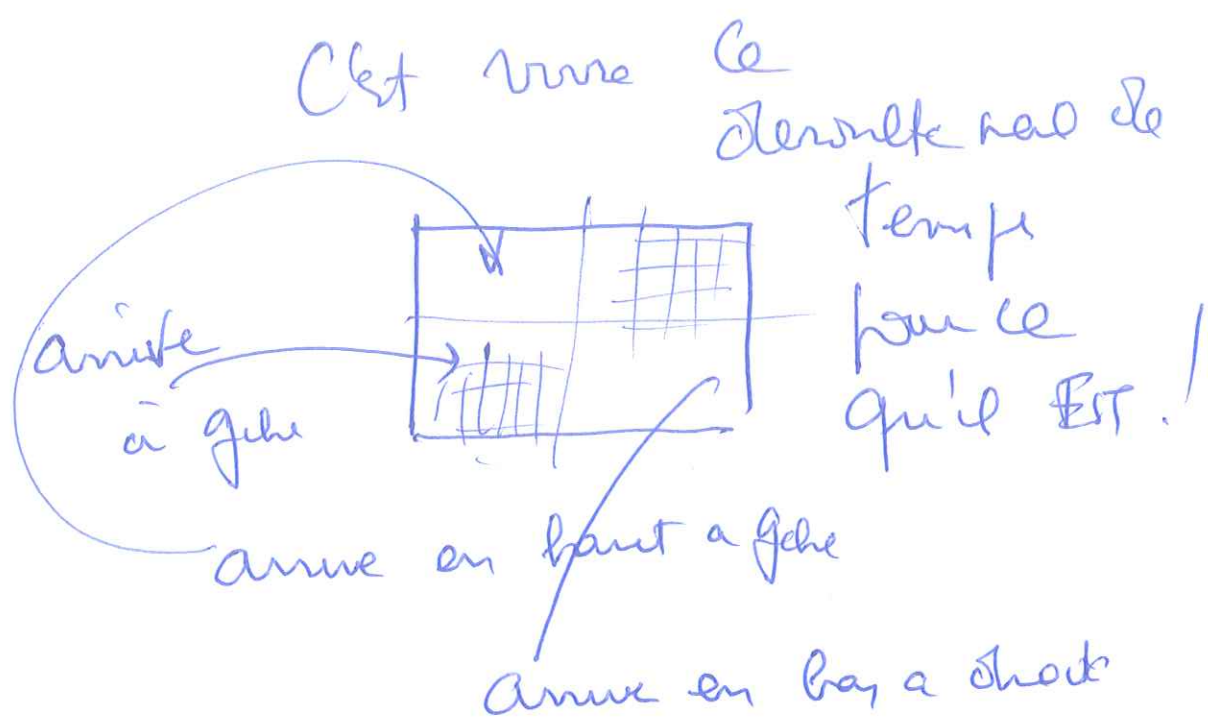 C'est vivre ce
de
temps
pour ce
qu'il EST !
arrive
à gche
arrive en haut a gche
arrive en bas a droite